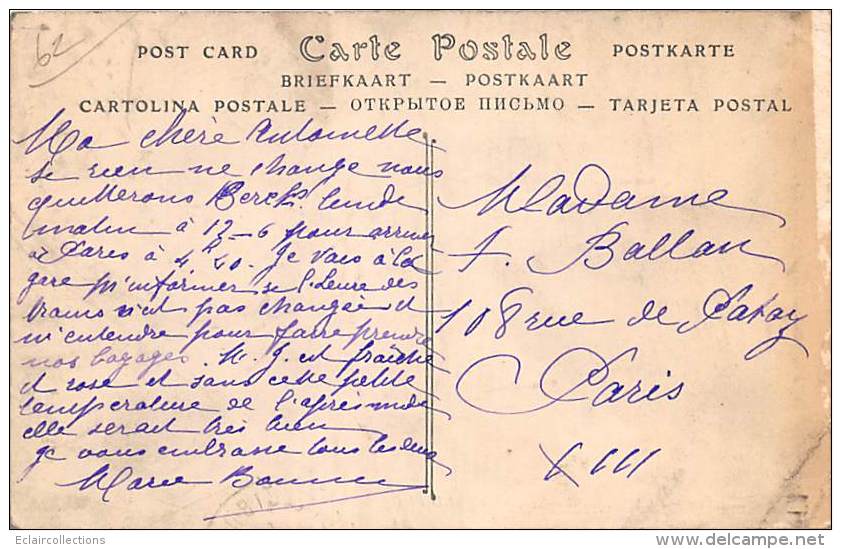 62
POST CARD Carte Postale POSTKARTE
BRIEFKAART — POSTKAART
CARTOLINA POSTALE — ОТКРЫТОЕ ПИСЬМО — TARJETA POSTAL
Ma chère Antoinette.
si rien ne change nous
quitterons Berck lundi
matin à 12-6 pour arriver
à Paris à 4h20. Je vais à la
gare m'informer si l'heure des
trains n'est pas changée et
m'entendre pour faire prendre
nos bagages. M. J. est fraîche
et rose et sans cette petite
température de l'après midi
elle serait très bien
je vous embrasse tous les deux
Marie
Madame
F. Ballan
108 rue de Patay
Paris
XIII
Eclaircollections
www.delcampe.net